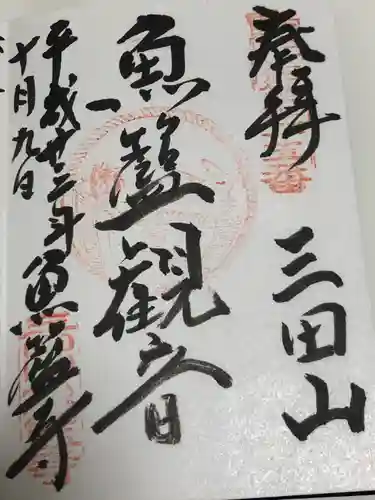 奉拝
三田山
魚籃観音
平成廿二年魚籃寺
十月九日